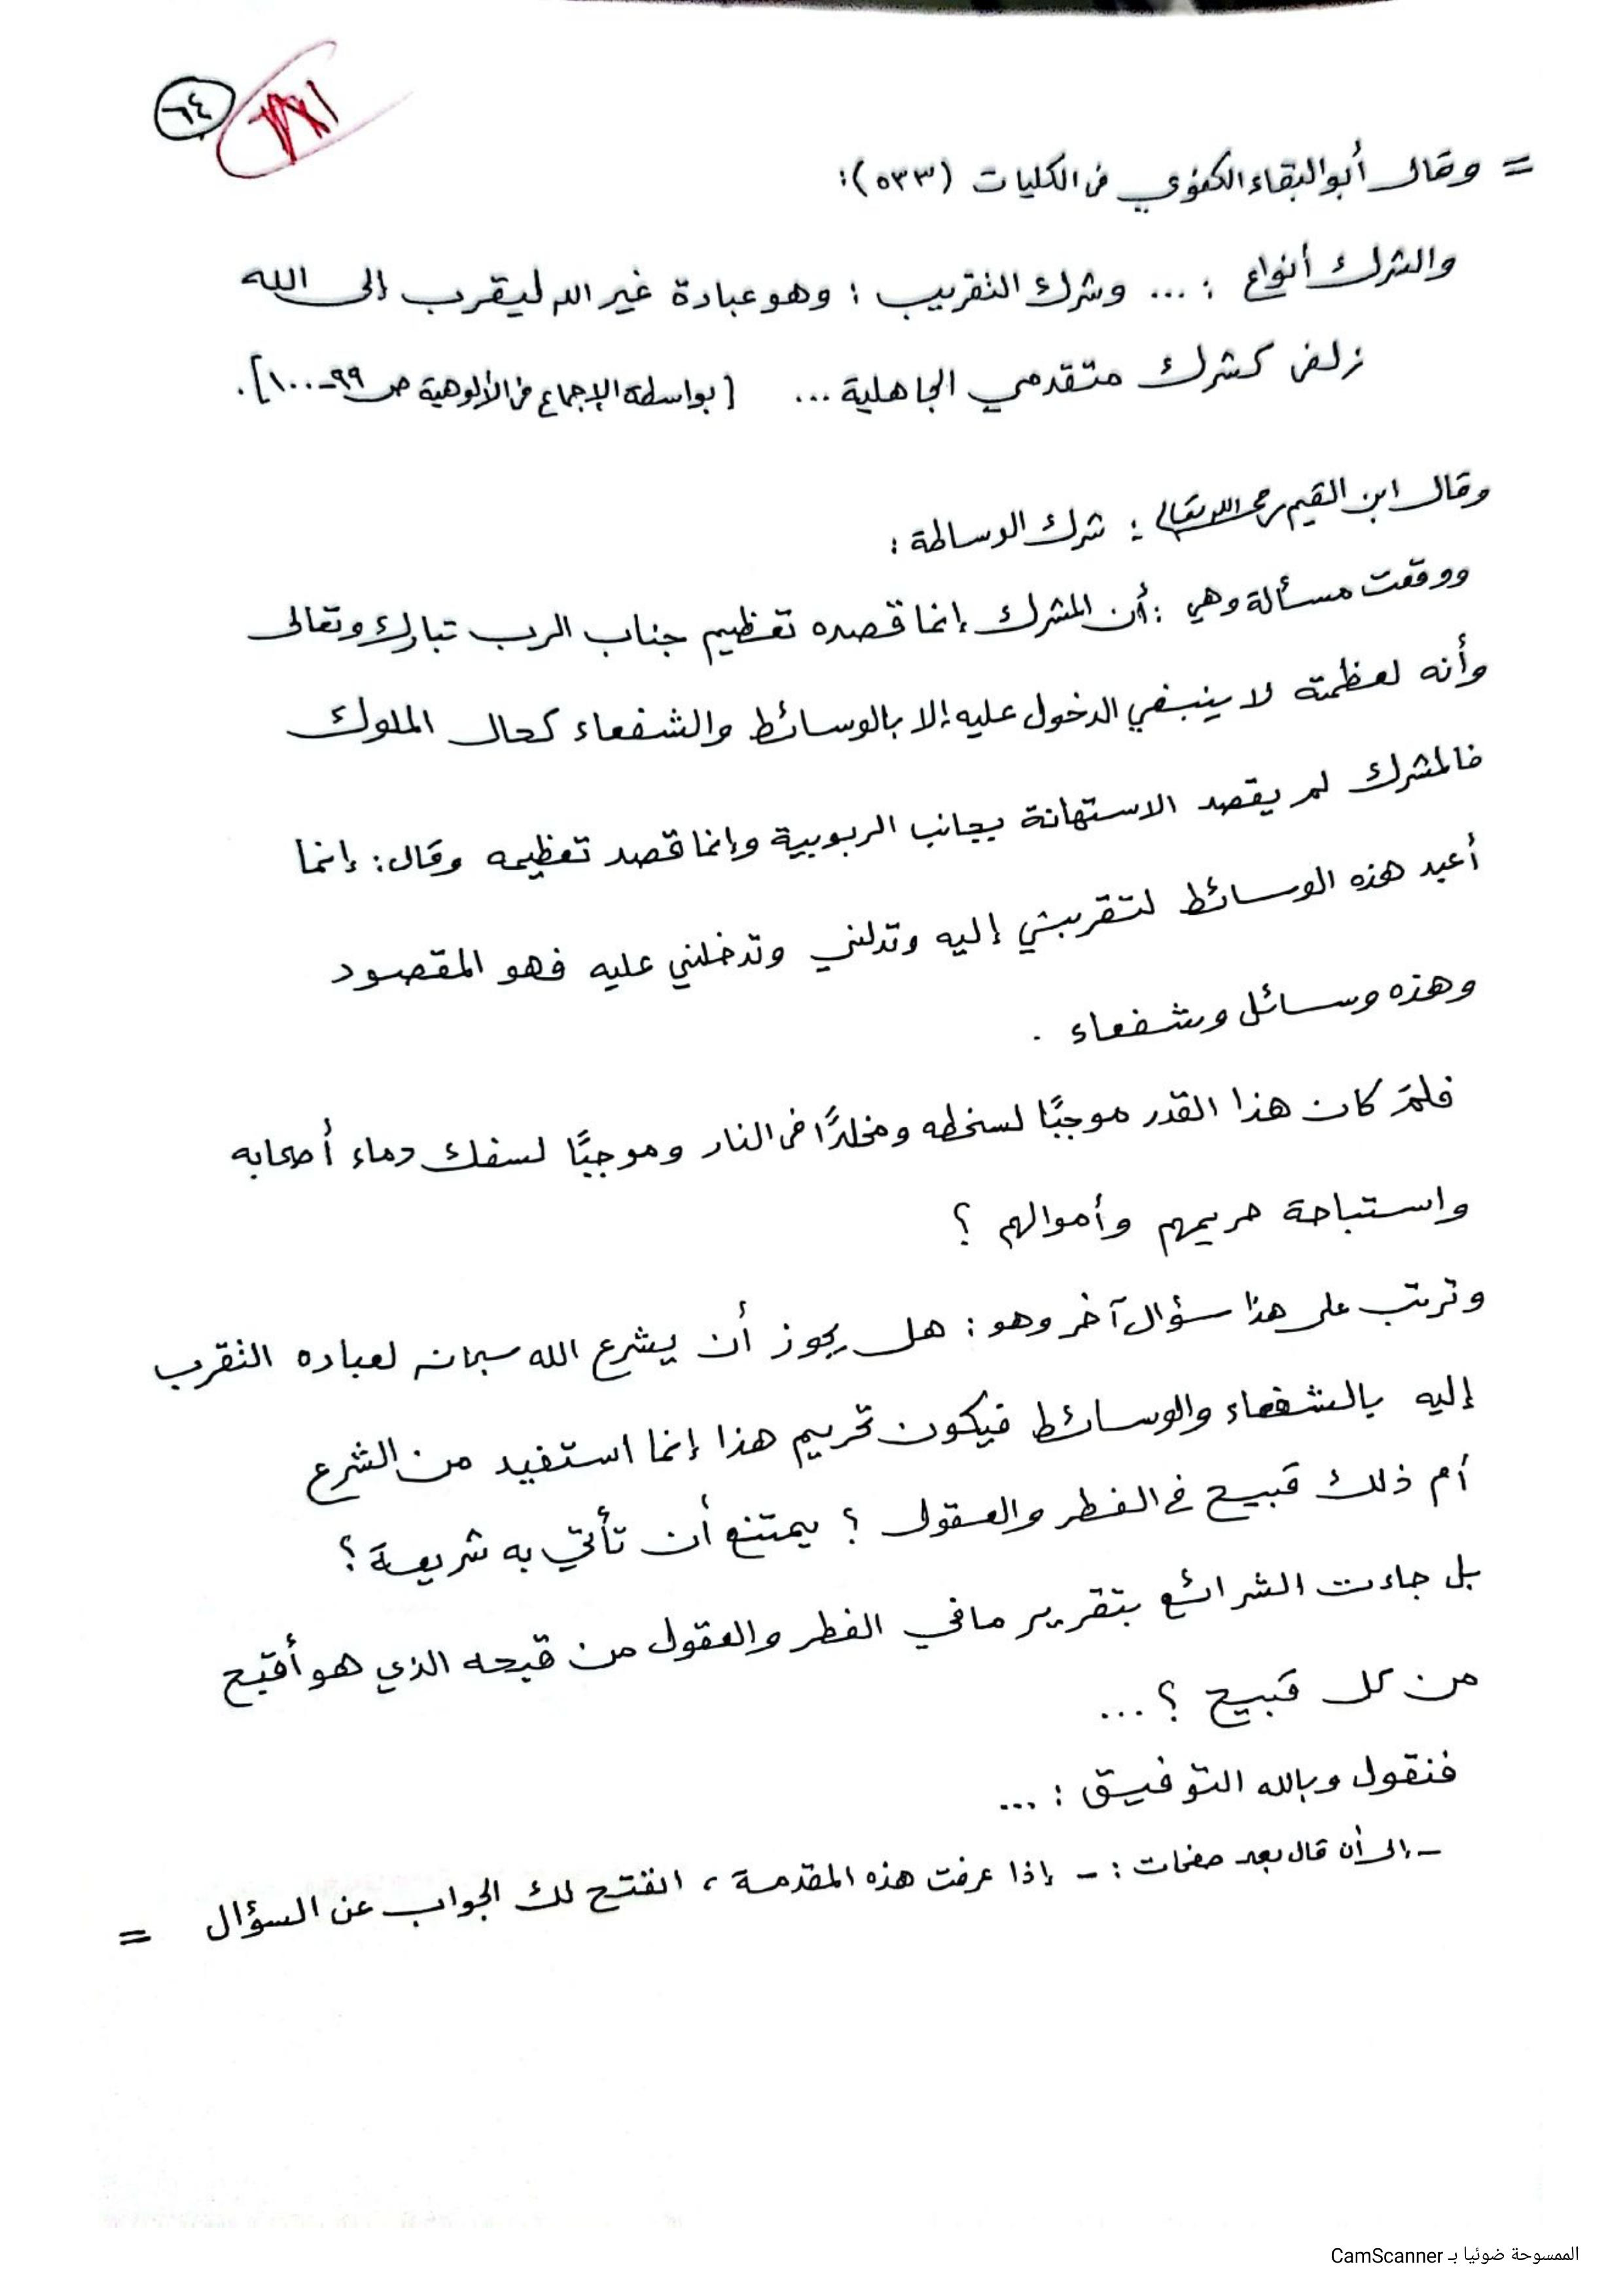 ٦٤
= وقال أبو البقاء الكفوي في الكليات (٥٣٣):
والشرك أنواع : ... وشرك التقريب : وهو عبادة غير الله ليقرب إلى الله
زلفى كشرك متقدمي الجاهلية ... [بواسطة الإجماع في الألوهية ص ٩٩-١٠٠].
وقال ابن القيم رحمه الله تعالى : شرك الوساطة :
ووقعت مسألة وهي : أن المشرك إنما قصده تعظيم جناب الرب تبارك وتعالى
وأنه لعظمته لا ينبغي الدخول عليه إلا بالوسائط والشفعاء كحال الملوك
فالمشرك لم يقصد الاستهانة بجانب الربوبية وإنما قصد تعظيمه وقال: إنما
أعبد هذه الوسائط لتقربني إليه وتدلني وتدخلني عليه فهو المقصود
وهذه وسائل وشفعاء .
فلمَ كان هذا القدر موجبًا لسخطه ومخلدًا في النار وموجبًا لسفك دماء أصحابه
واستباحة حريمهم وأموالهم ؟
وترتب على هذا سؤال آخر وهو : هل يجوز أن يشرع الله سبحانه لعباده التقرب
إليه بالشفعاء والوسائط فيكون تحريم هذا إنما استفيد من الشرع
أم ذلك قبيح في الفطر والعقول ؟ يمتنع أن تأتي به شريعة ؟
بل جاءت الشرائع بتقرير ما في الفطر والعقول من قبحه الذي هو أقبح
من كل قبيح ؟ ...
فنقول وبالله التوفيق : ...
- إلى أن قال بعد صفحات : - إذا عرفت هذه المقدمة ، انفتح لك الجواب عن السؤال =
الممسوحة ضوئيا بـ CamScanner